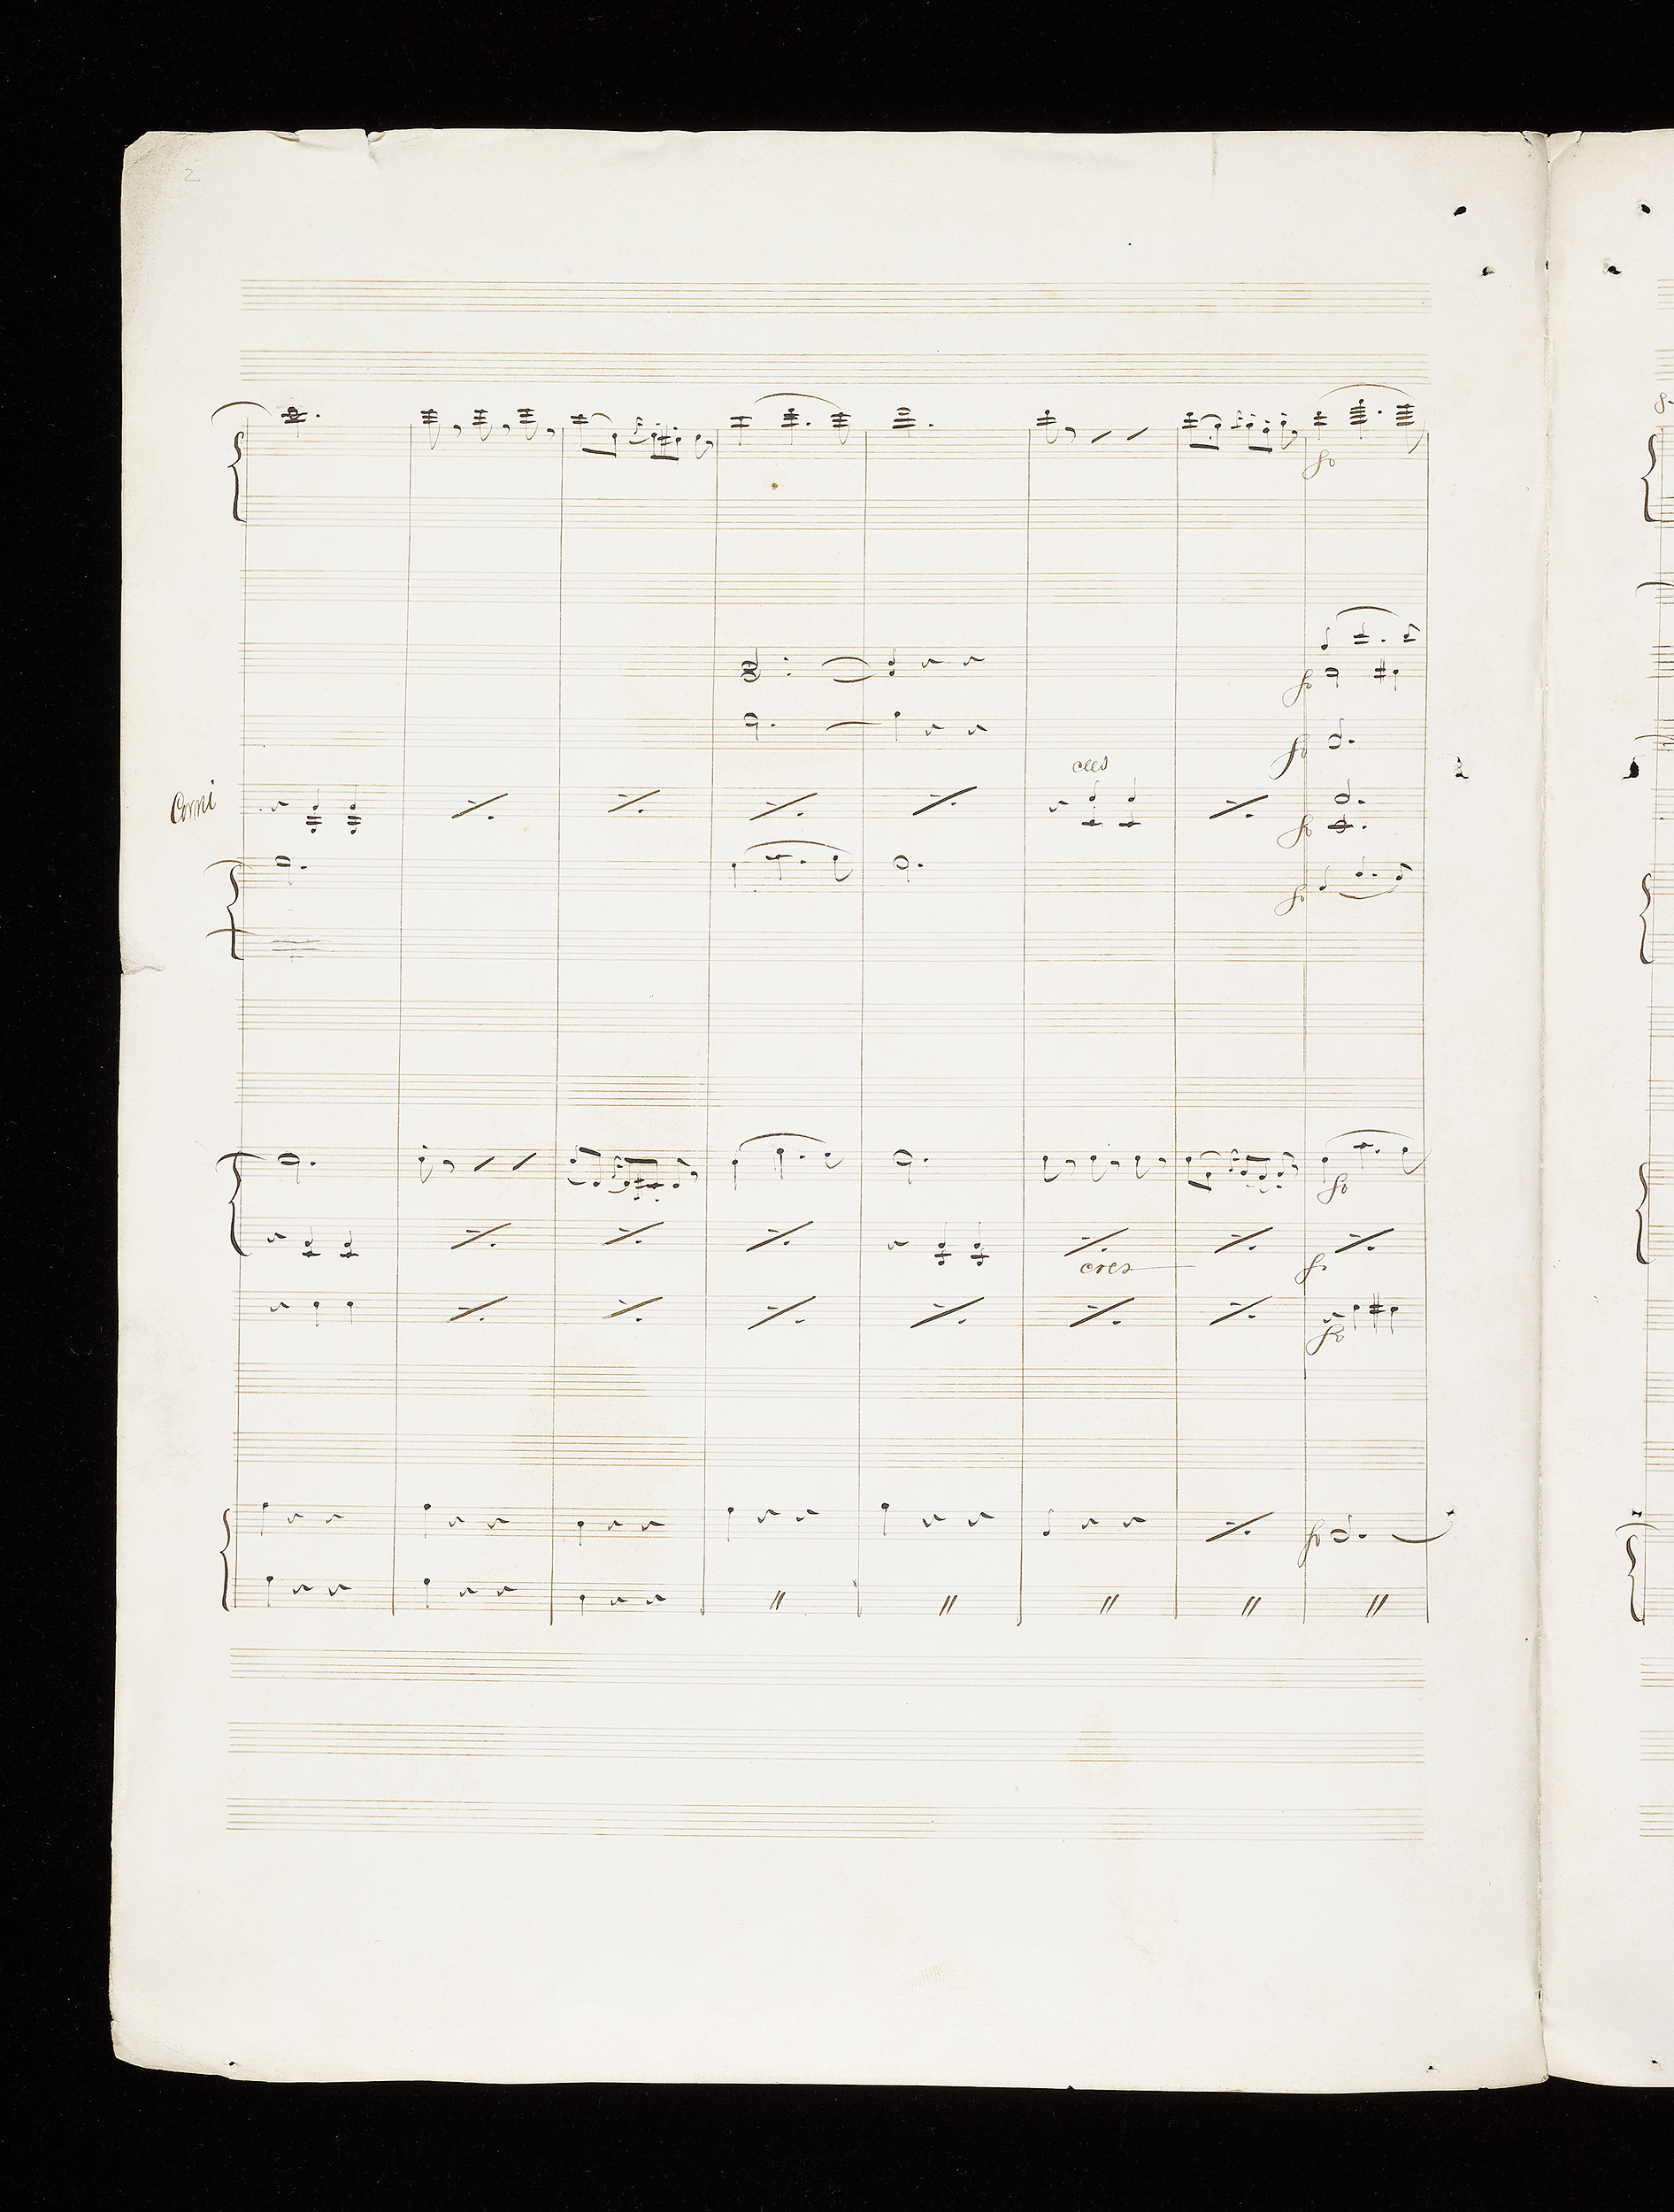 2
fo
fo
fo
cres
Corni
fo
fo
fo
cres
fo
fo